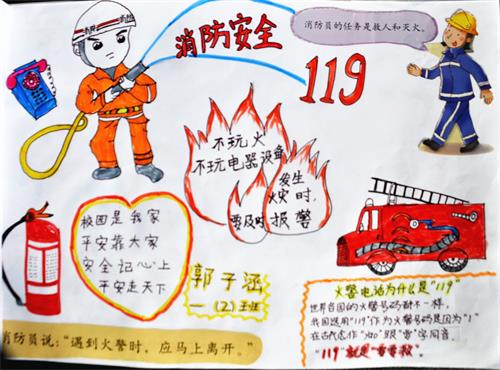 消防安全
119
消防员的任务是救人和灭火。
不玩火
不玩电器设备
发生
火灾时,
要及时报警
校园是我家
平安靠大家
安全记心上
平安走天下
郭子涵
一(2)班
火警电话为什么是"119"
世界各国的火警号码都不一样,
我国选用"119"作为火警号码是因为"1"
在古代念作"yao"跟"要"字同音,
"119"就是"要要救"。
消防员说:"遇到火警时,应马上离开。"